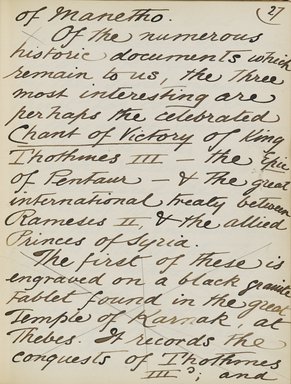 27
of Manetho.
Of the numerous
historic documents which
remain to us, the three
most interesting are
perhaps the celebrated
Chant of Victory of King
Thothmes III – the Epic
of Pentaur – & the great
international treaty between
Rameses II & the allied
Princes of Syria.
The first of these is
engraved on a black granite
tablet found in the great
Temple of Karnak, at
Thebes. It records the
conquests of Thothmes
III; and